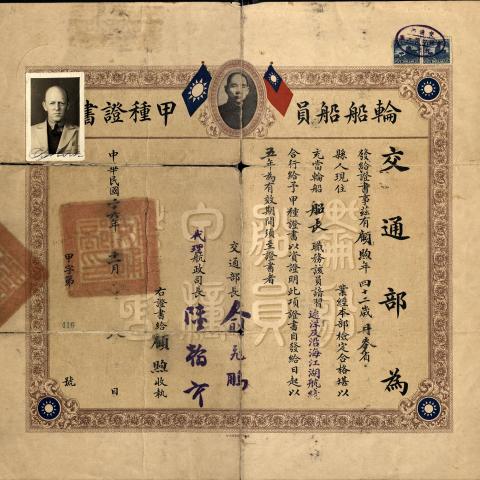 輪船船員甲種證書
交通部為
發給證書事茲有顧煦年四十二歲丹麥省
縣人現住 業經本部檢定合格堪以
充當輪船船長職務該員諳習遠洋及沿海江湖航綫
合行給予甲種證書以資證明此項證書自發給日起以
五年為有效期間須至證書者
交通部長俞飛鵬
代理航政司長陸翰芹
右證書給顧煦收執
中華民國二六年 月 日
甲字第416號